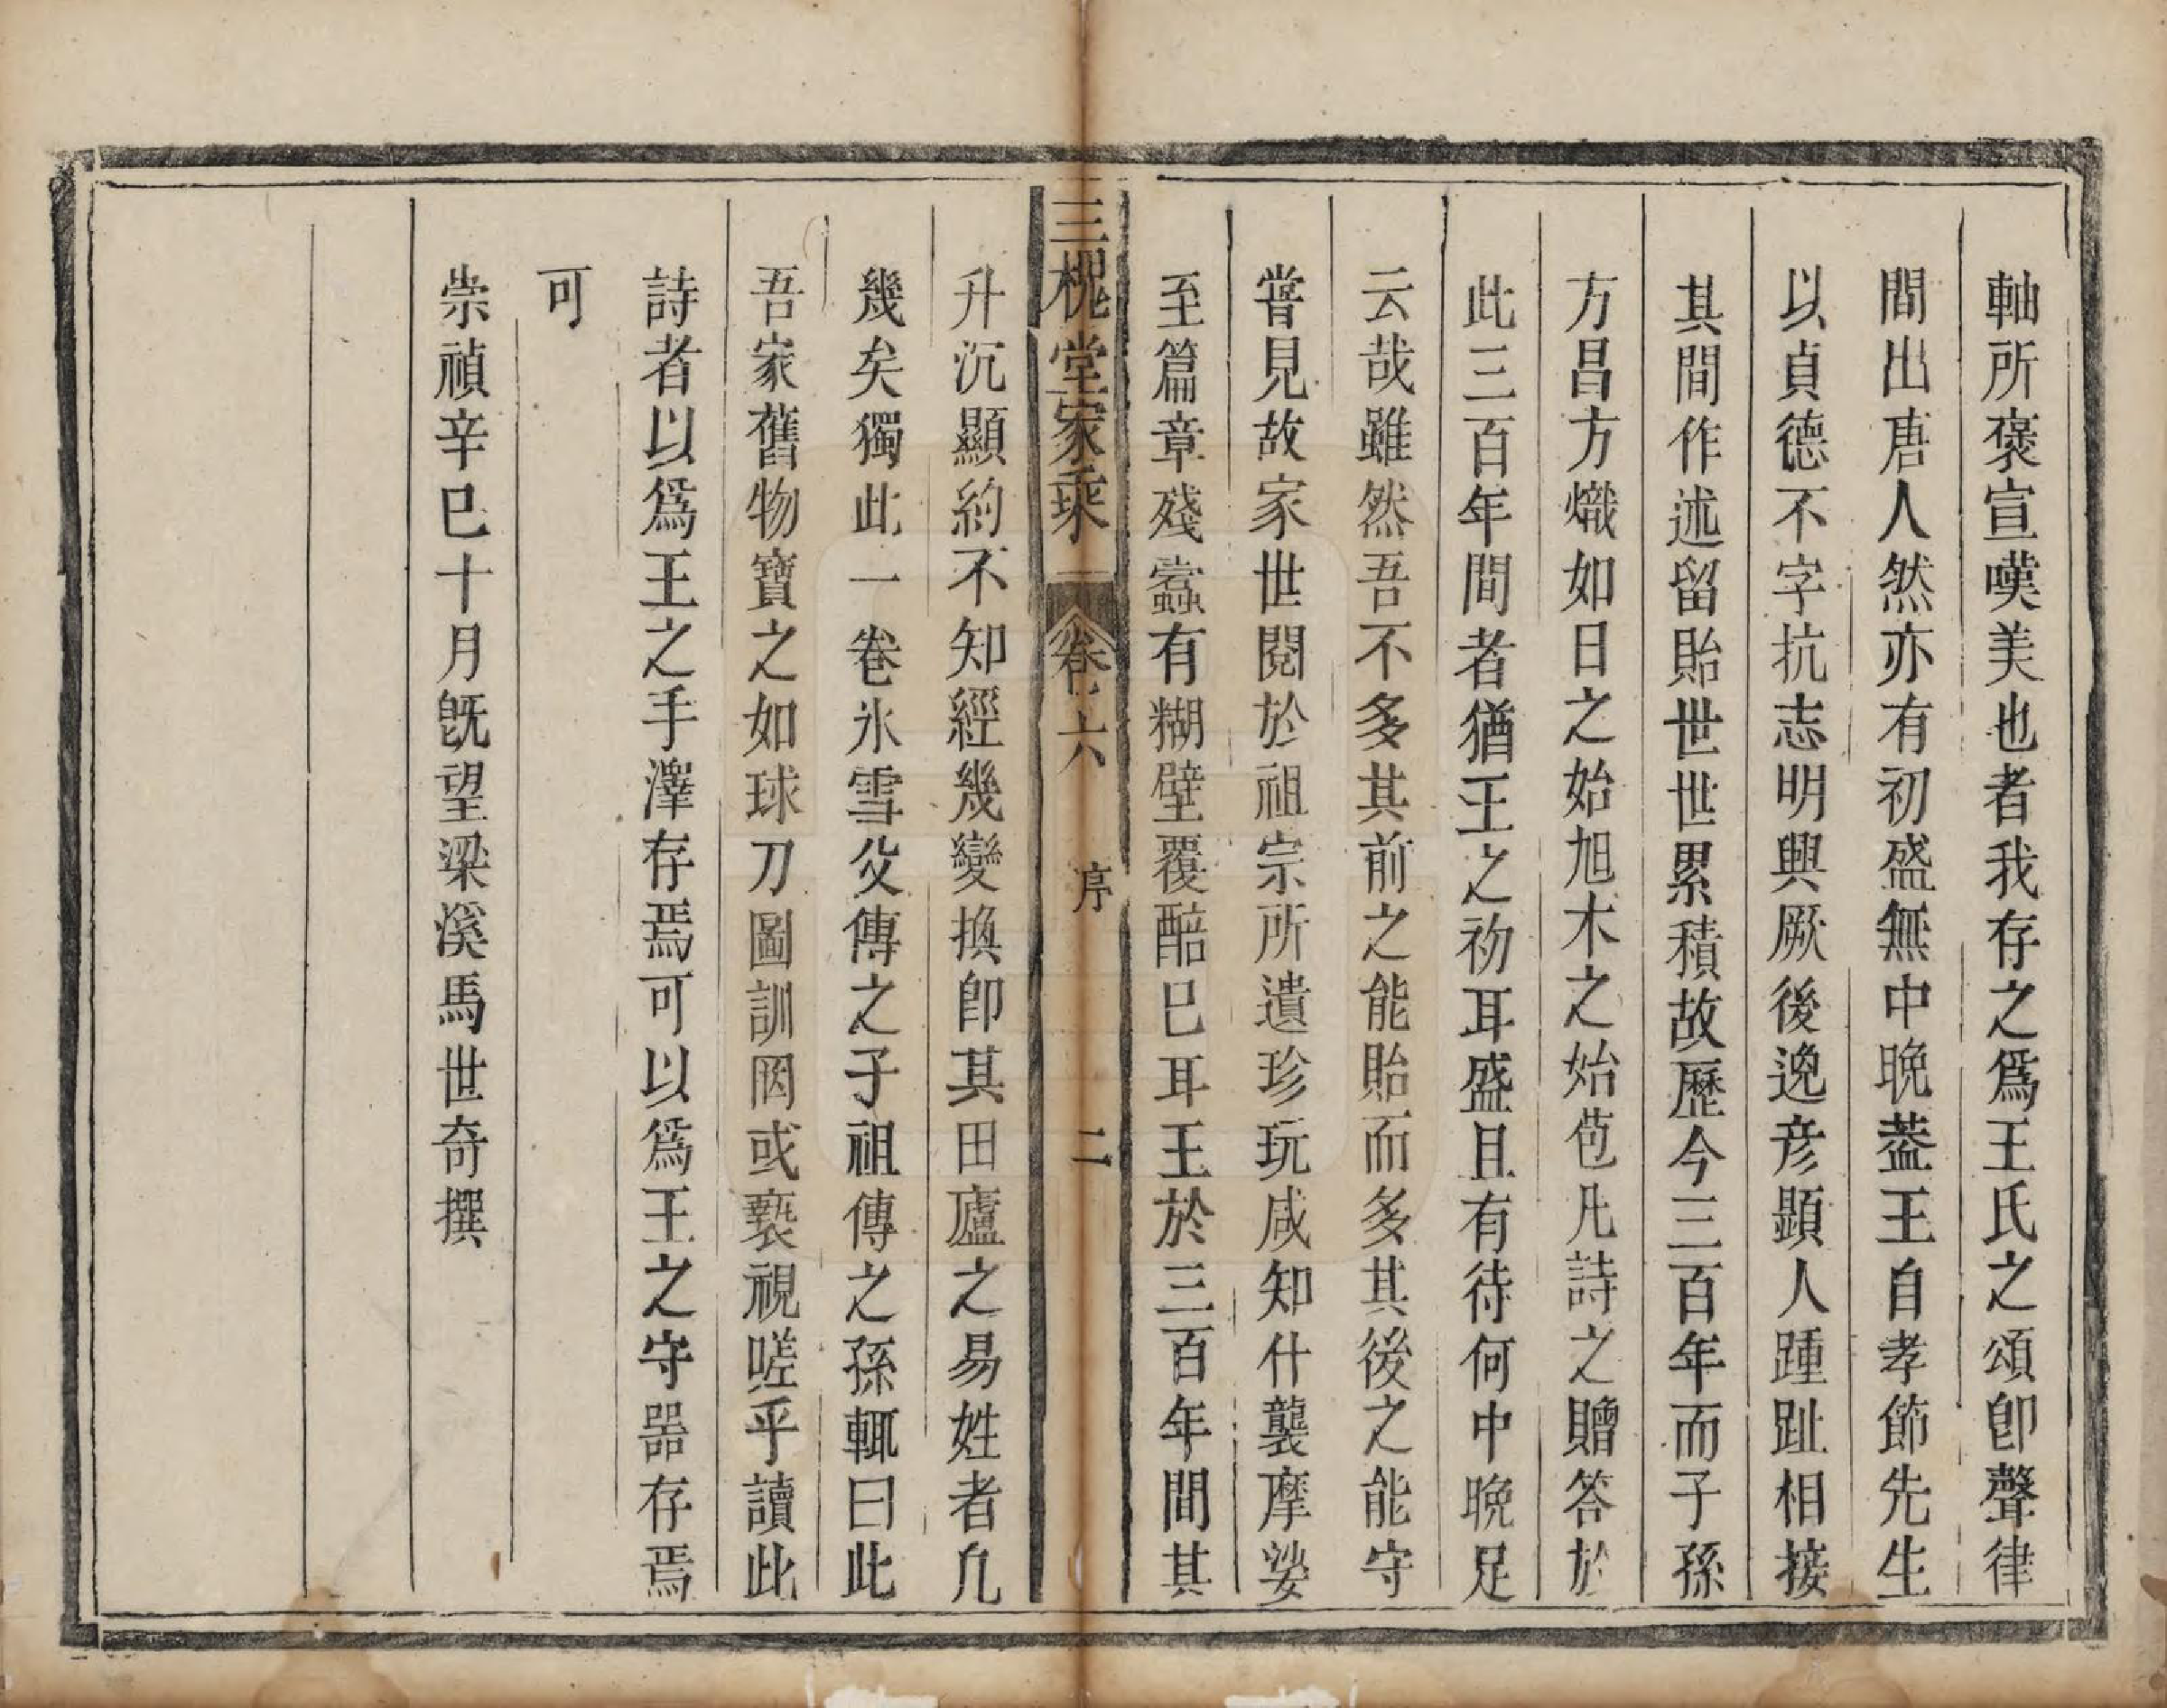 軸所褒宣嘆美也者我存之爲王氏之頌卽聲律
間出唐人然亦有初盛無中晚葢王自孝節先生
以貞德不字抗志明興厥後逸彦顯人踵趾相接
其間作述留貽世世累積故歷今三百年而子孫
方昌方熾如日之始旭木之始苞凡詩之贈答於
此三百年間者猶王之初耳盛且有待何中晚足
云哉雖然吾不多其前之能貽而多其後之能守
嘗見故家世閥於祖宗所遺珍玩咸知什襲摩娑
至篇章殘蠹有糊壁覆醅已耳王於三百年間其
三槐堂家乘 卷六 序 二
升沉顯約不知經幾變換卽其田廬之易姓者凡
幾矣獨此一卷氷雪父傳之子祖傳之孫輒曰此
吾家舊物寶之如球刀圖訓罔或褻視嗟乎讀此
詩者以爲王之手澤存焉可以爲王之守器存焉
可
崇禎辛巳十月旣望梁溪馬世奇撰